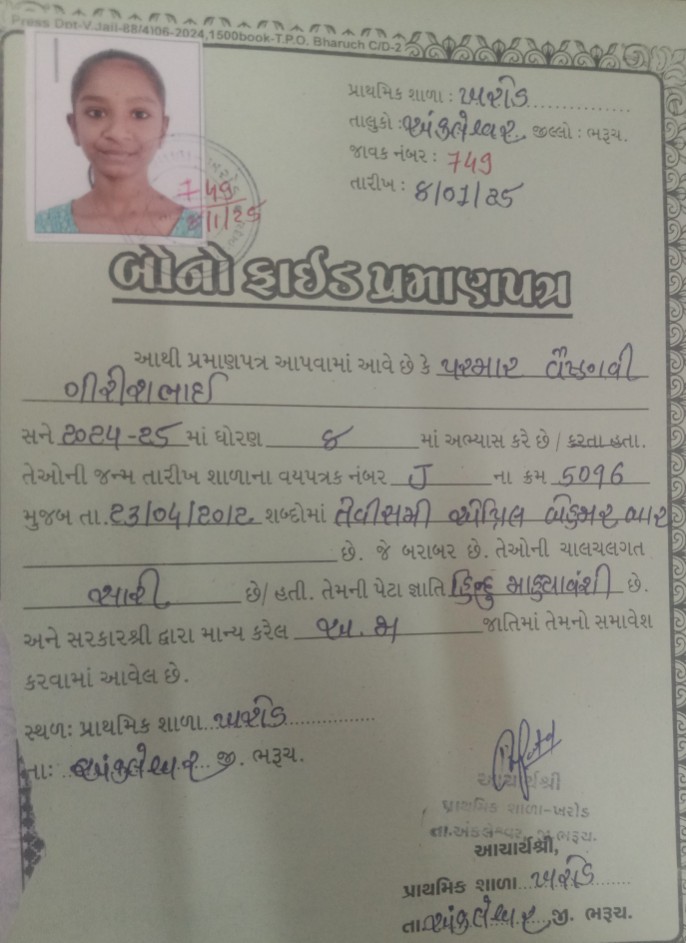 Press Dpt-V.Jail-88/4106-2024,1500book-T.P.O. Bharuch C/D-2
પ્રાથમિક શાળા : ખરોડ
તાલુકો : અંકલેશ્વર જીલ્લો : ભરૂચ.
જાવક નંબર : 749
તારીખ : ૪/૦૧/૨૫
749
બોનોફાઈડ પ્રમાણપત્ર
આથી પ્રમાણપત્ર આપવામાં આવે છે કે પરમાર વૈષ્ણવી
ગીરીશભાઈ
સને ૨૦૨૪-૨૫ માં ધોરણ માં અભ્યાસ કરે છે / કરતા હતા.
તેઓની જન્મ તારીખ શાળાના વયપત્રક નંબર J ના ક્રમ 5096
મુજબ તા. ૨૩/૦૪/૨૦૧૨ શબ્દોમાં તેવીસમી એપ્રિલ બેહજાર બાર
છે. જે બરાબર છે. તેઓની ચાલચલગત
સારી છે/ હતી. તેમની પેટા જ્ઞાતિ હિન્દુ માહ્યાવંશી છે.
અને સરકારશ્રી દ્વારા માન્ય કરેલ અ.જા જાતિમાં તેમનો સમાવેશ
કરવામાં આવેલ છે.
સ્થળ: પ્રાથમિક શાળા ખરોડ
તા: અંકલેશ્વર જી. ભરૂચ.
આચાર્યશ્રી
પ્રાથમિક શાળા-ખરોડ
તા.અંકલેશ્વર, જી.ભરૂચ.
આચાર્યશ્રી,
પ્રાથમિક શાળા ખરોડ
તા અંકલેશ્વર જી. ભરૂચ.